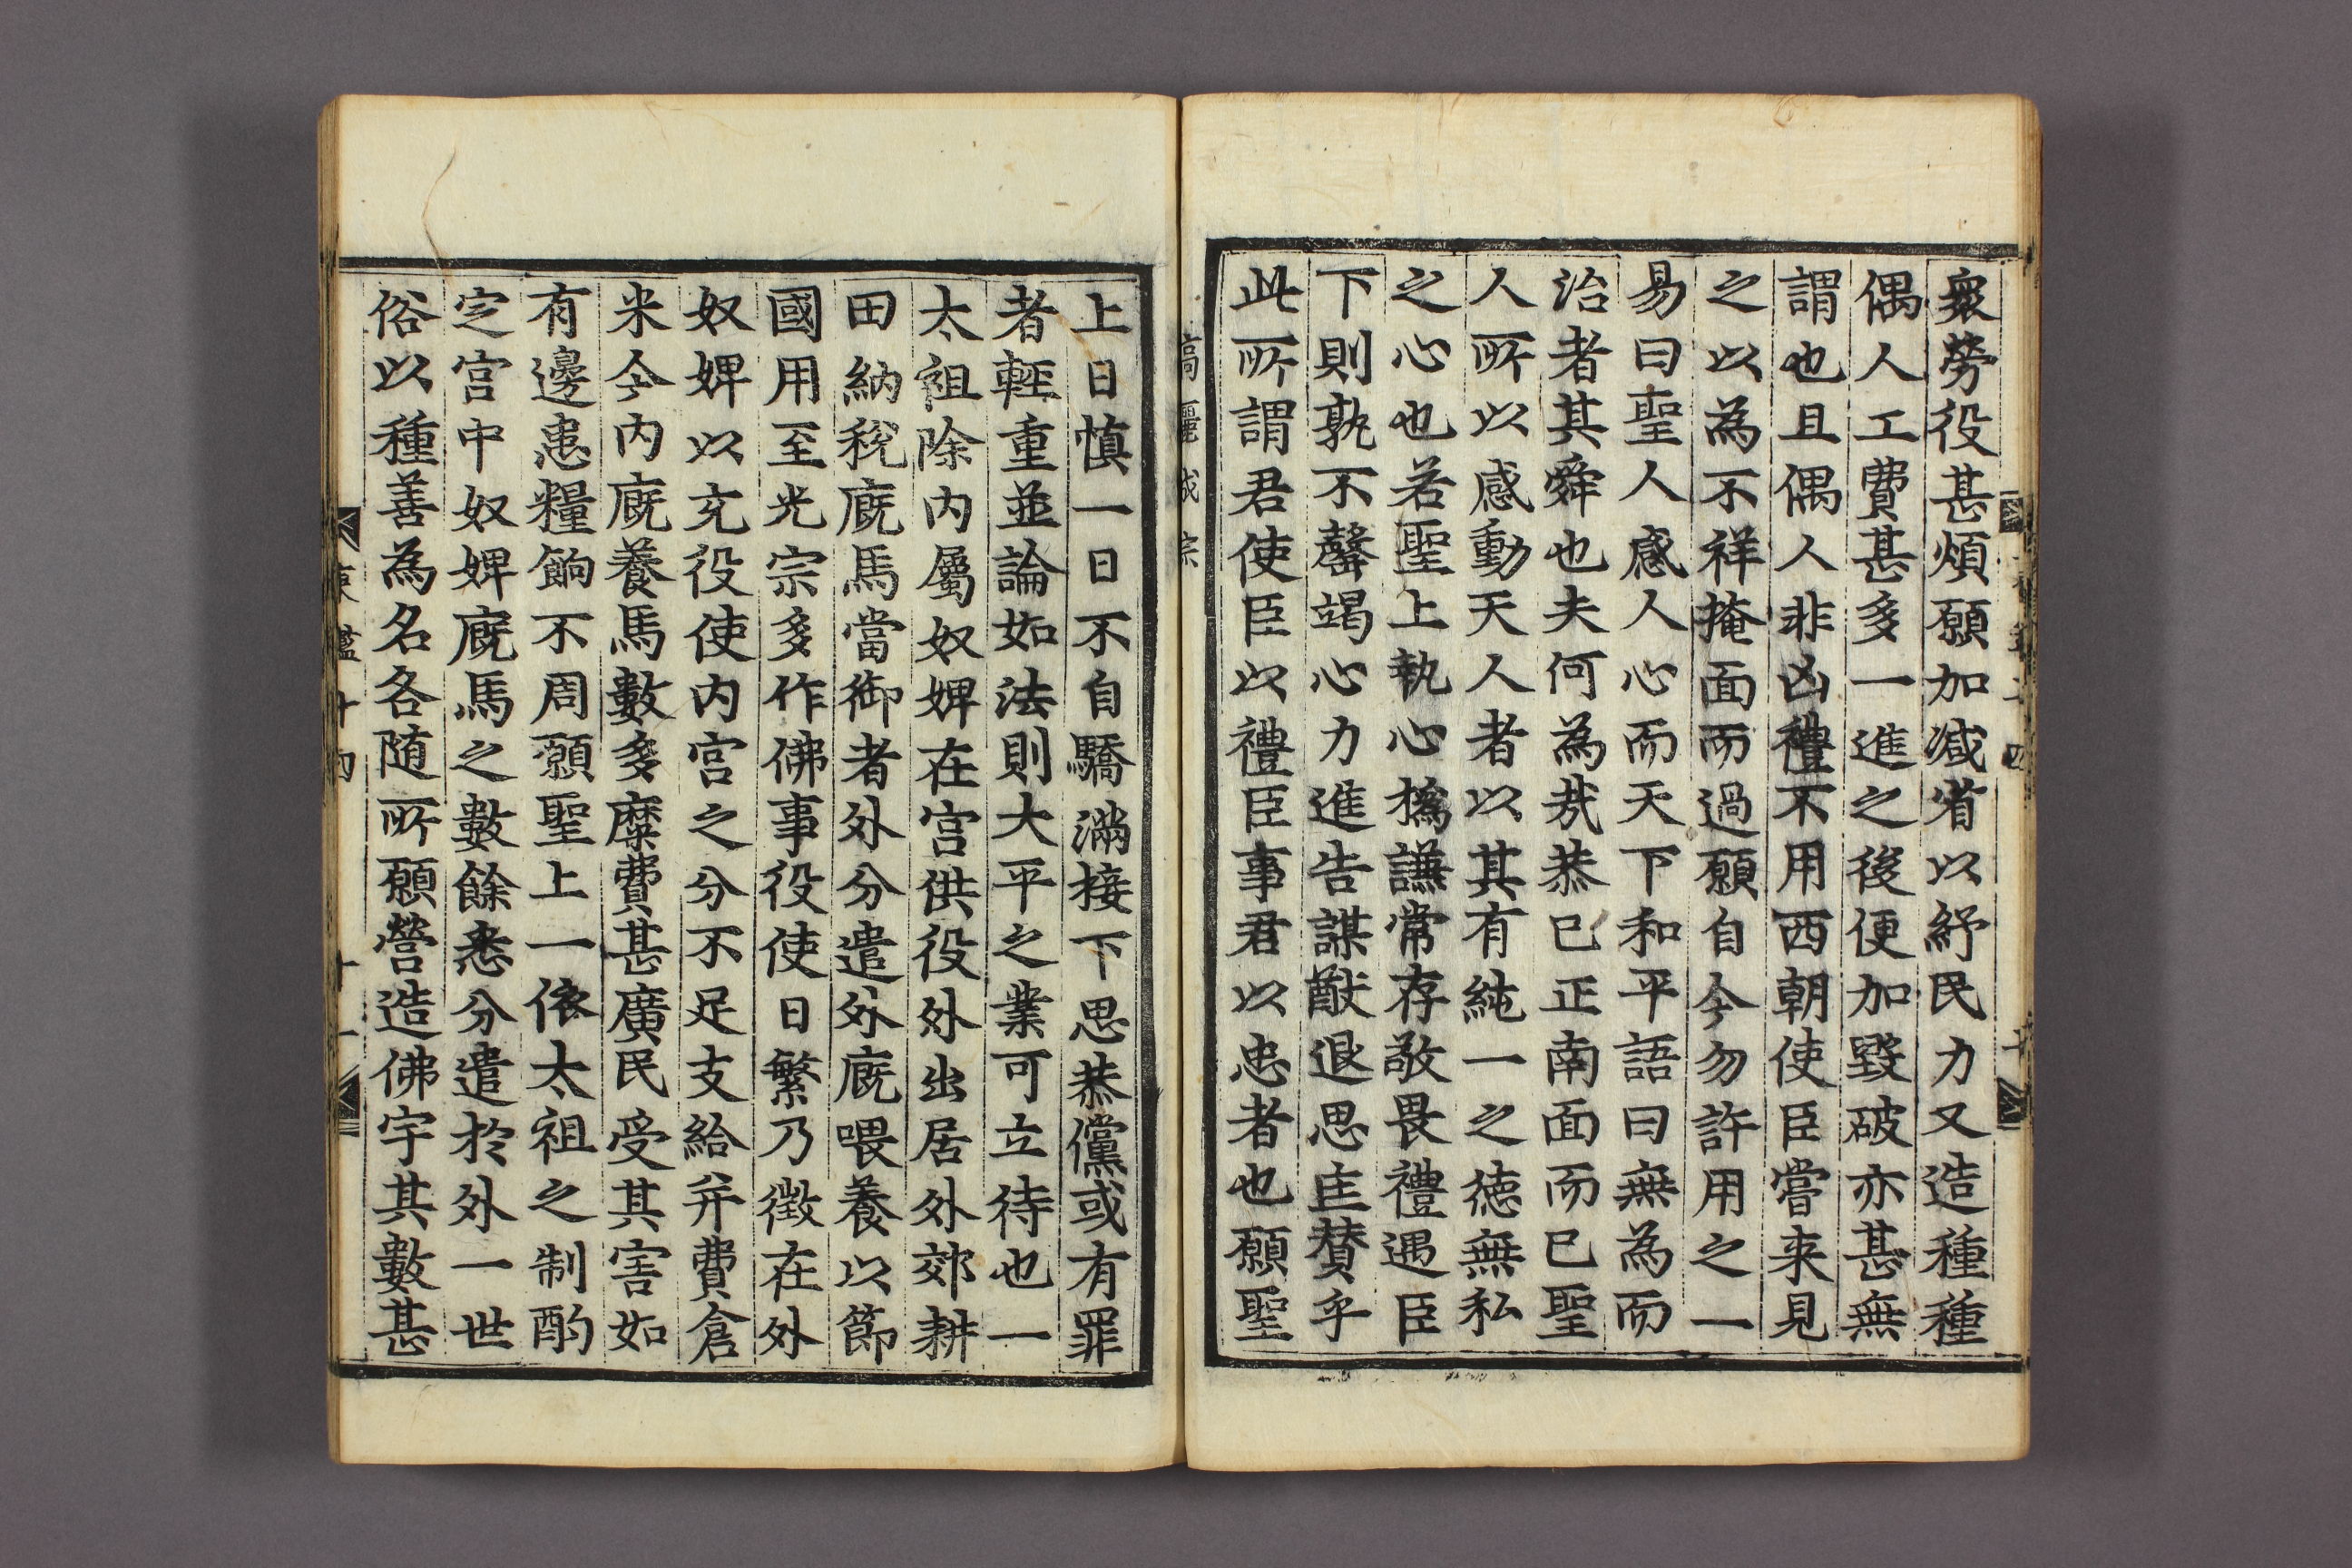 衆勞役甚煩願加减省以紓民力又造種種
偶人工費甚多一進之後便加毀破亦甚無
謂也且偶人非凶禮不用西朝使臣嘗来見
之以為不祥掩面而過願自今勿許用之一
易曰聖人感人心而天下和平語曰無為而
治者其舜也夫何為㢤恭已正南面而已聖
人所以感動天人者以其有純一之德無私
之心也若聖上執心撝謙常存敬畏禮遇臣
下則孰不罄竭心力進告謀猷退思匡賛乎
此所謂君使臣以禮臣事君以忠者也願聖
高麗成宗
上日慎一日不自驕滿接下思恭儻或有罪
者輕重並論如法則大平之業可立待也一
太祖除内屬奴婢在宮供役外出居外郊耕
田納稅廐馬當御者外分遣外廐喂養以節
國用至光宗多作佛事役使日繁乃徵在外
奴婢以充役使内宮之分不足支給并費倉
米今内廐養馬數多糜費甚廣民受其害如
有邊患糧餉不周願聖上一依太祖之制酌
定宮中奴婢廐馬之數餘悉分遣於外一世
俗以種善為名各随所願營造佛宇其數甚